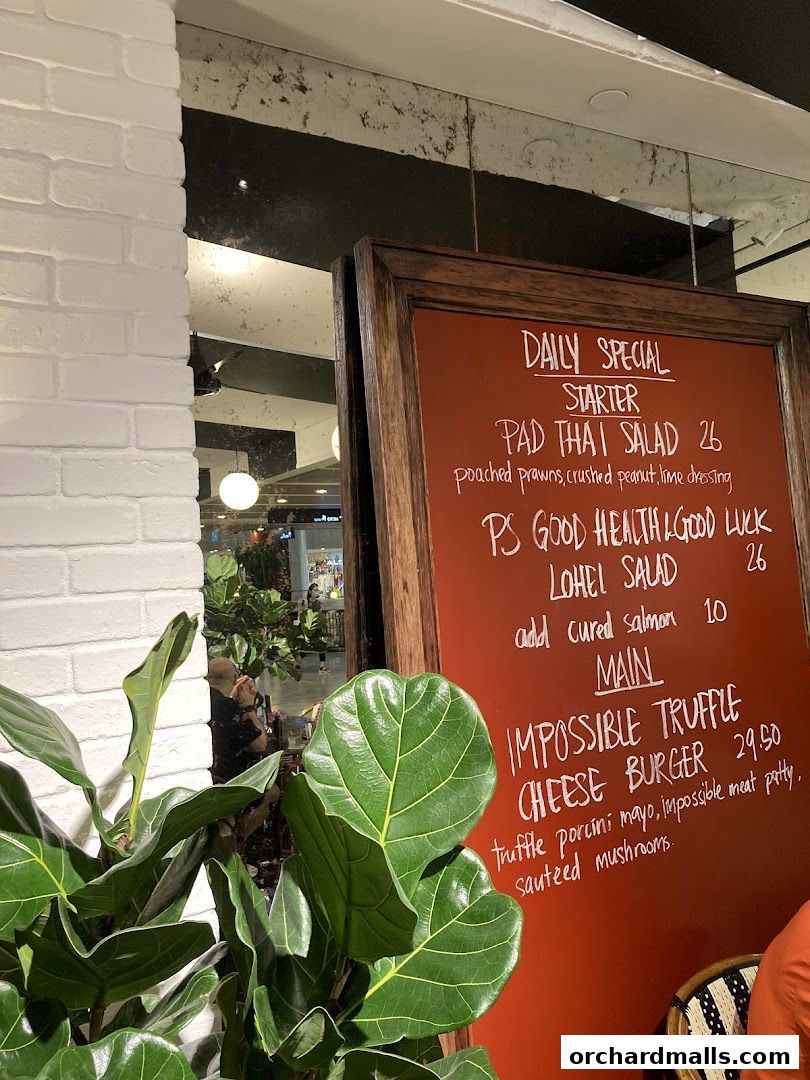 DAILY SPECIAL
STARTER
PAD THAI SALAD 26
poached prawns, crushed peanut, lime dressing
PS GOOD HEALTH & GOOD LUCK
LOHEI SALAD 26
add cured salmon 10
MAIN
IMPOSSIBLE TRUFFLE
CHEESE BURGER 29.50
truffle porcini mayo, impossible meat patty,
sauteed mushrooms.
orchardmalls.com